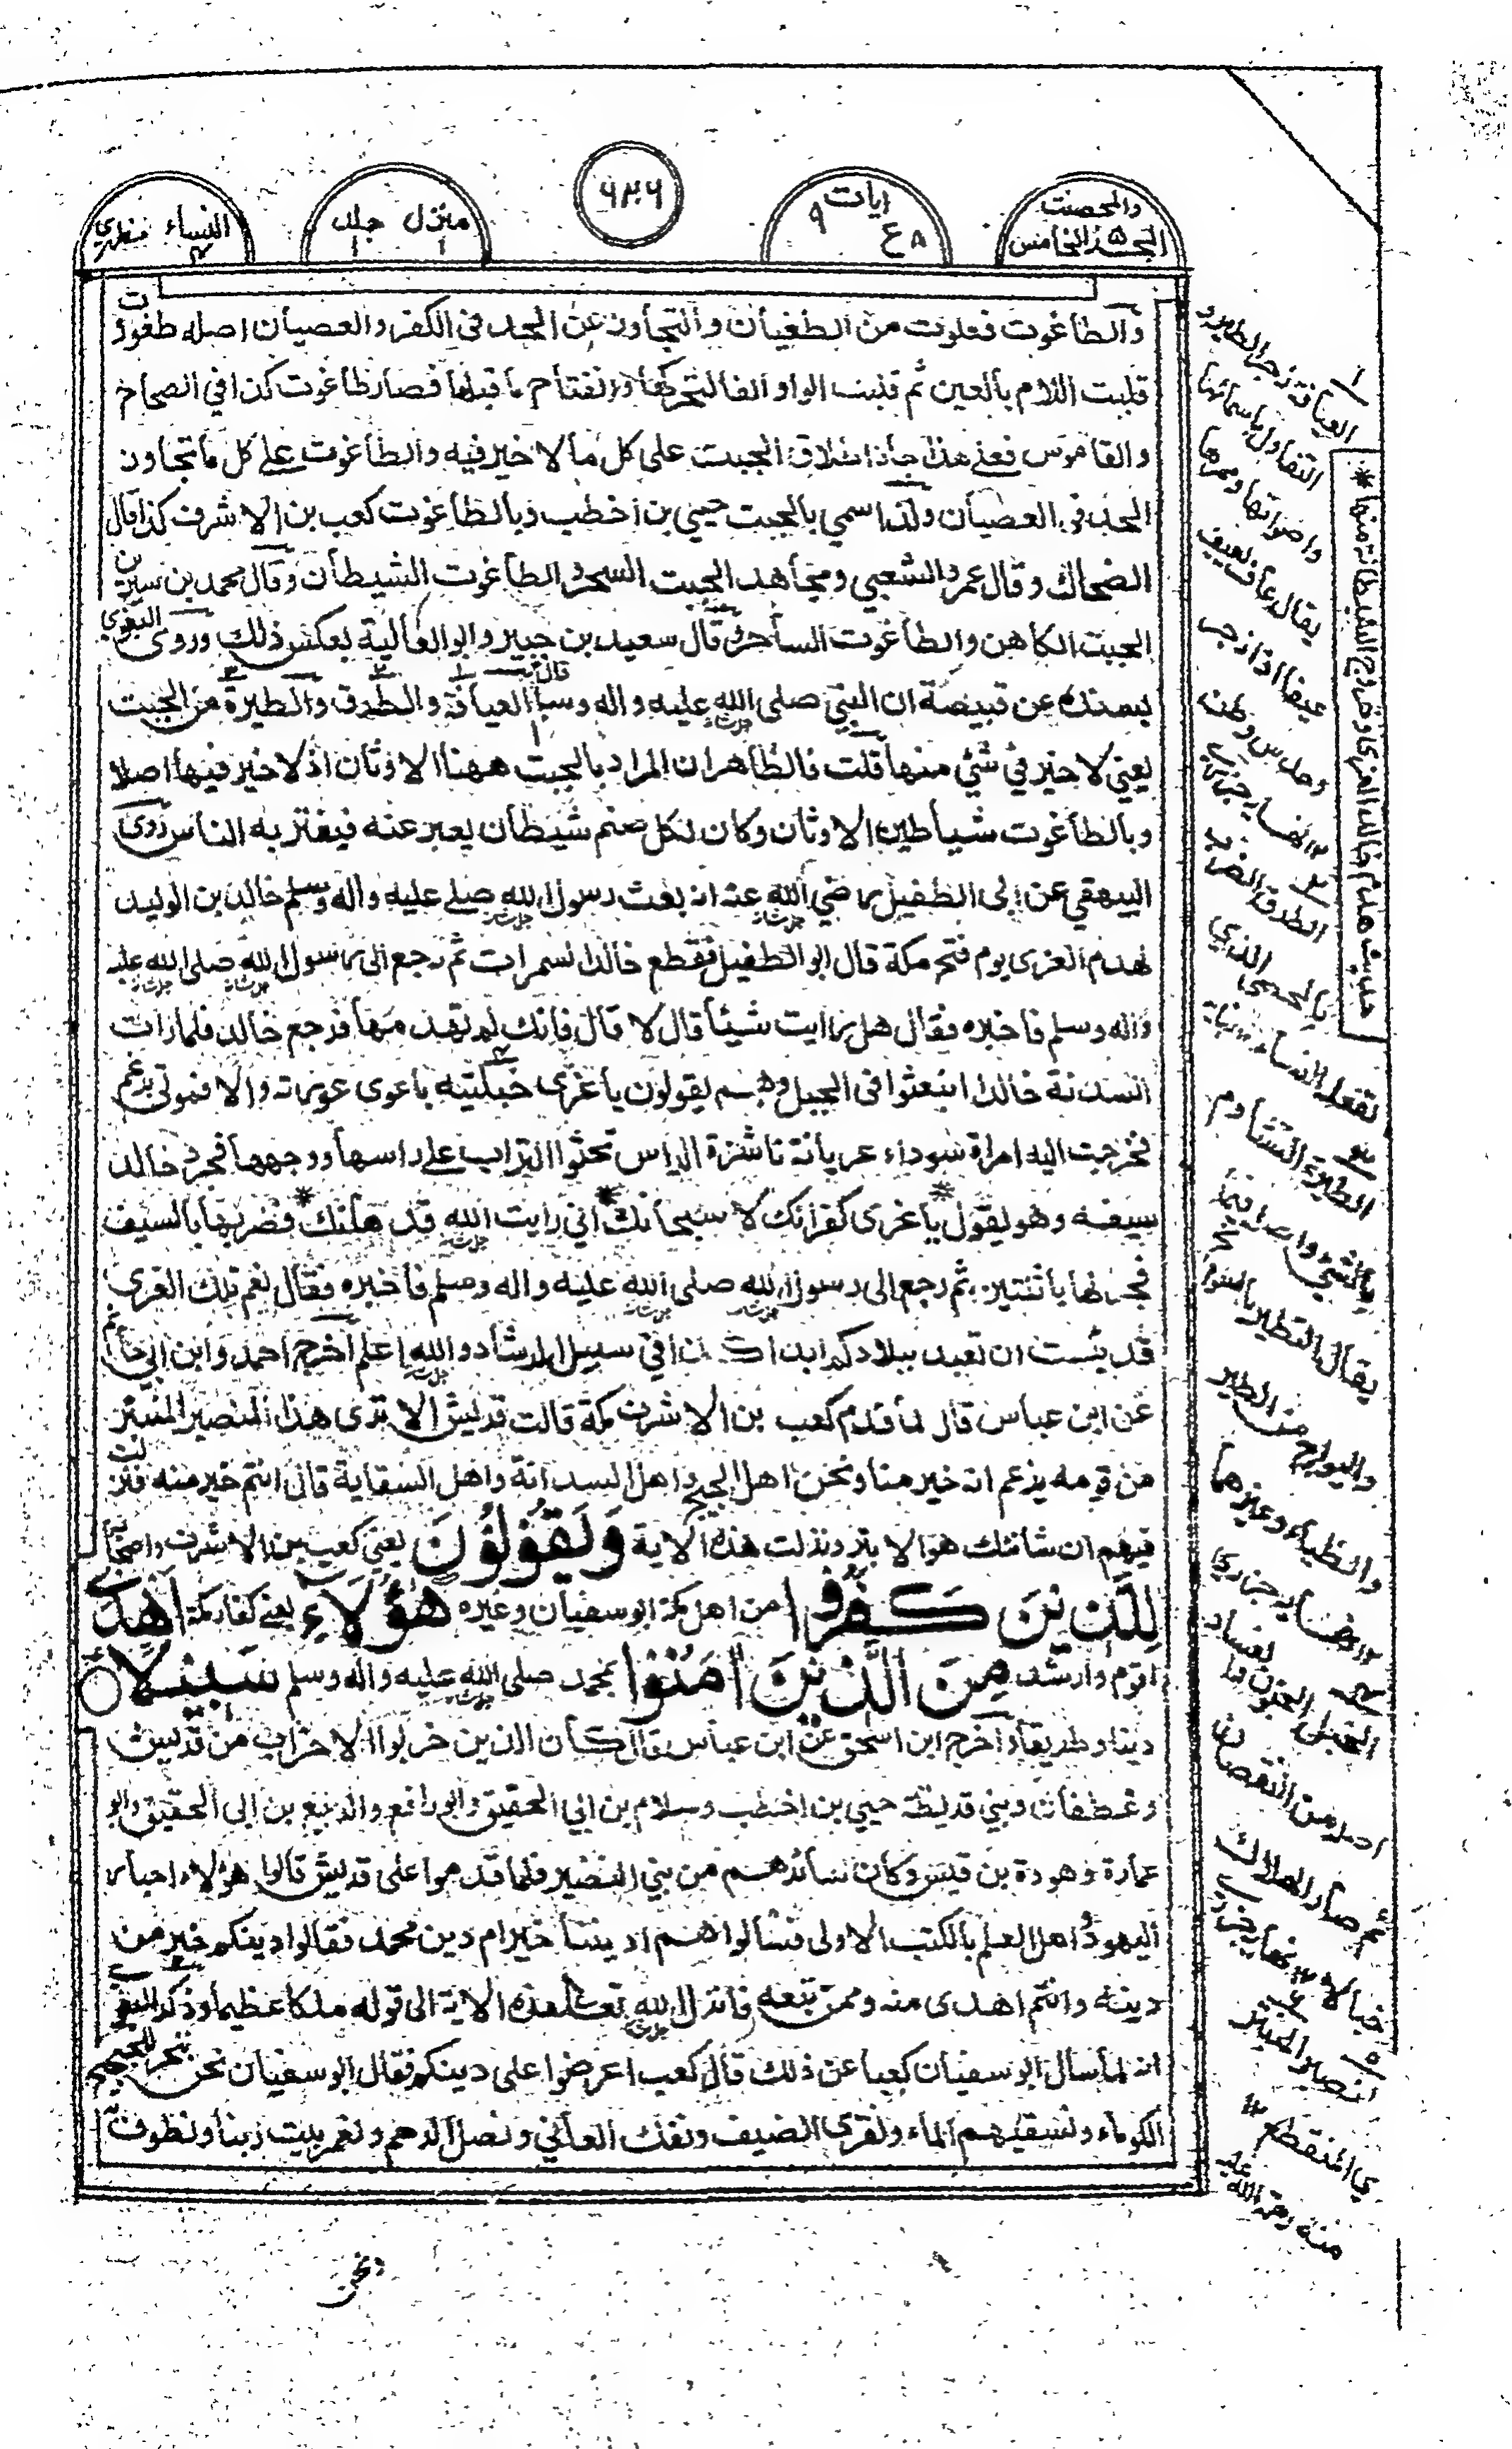 والمحصنت
الجزء الخامس ٥
ايات ٩
ع ٨
٦٣٦
منزل ١ جلد ١
النساء ٤ مظهري
والطاغوت فعلوت من الطغيان والتجاوز عن الحد في الكفر والعصيان اصله طغووت
قلبت اللام بالعين ثم قلبت الواو الفا لتحركها وانفتاح ما قبلها فصار طاغوت كذا في الصحاح
والقاموس فعلى هذا جاز اطلاق الجبت على كل ما لا خير فيه والطاغوت على كل ما تجاوز
الحد في العصيان ولذا سمي بالجبت حيي بن اخطب وبالطاغوت كعب بن الاشرف كذا قال
الضحاك وقال عمرو الشعبي ومجاهد الجبت السحر والطاغوت الشيطان وقال محمد بن سيرين
الجبت الكاهن والطاغوت الساحر وقال سعيد بن جبير وابو العالية بعكس ذلك وروى البغوي
بسنده عن قبيصة ان النبي صلى الله عليه واله وسلم قال العيافة والطرق والطيرة من الجبت
يعني لا خير في شئ منها قلت فالظاهر ان المراد بالجبت ههنا الاوثان اذ لا خير فيها اصلا
وبالطاغوت شياطين الاوثان وكان لكل صنم شيطان يعبر عنه فيغتر به الناس روى
البيهقي عن ابي الطفيل رضي الله عنه انه بعث رسول الله صلى عليه واله وسلم خالد بن الوليد
لهدم العزى يوم فتح مكة قال ابو الطفيل فقطع خالد السمرات ثم رجع الى رسول الله صلى الله عليه
واله وسلم فاخبره فقال هل رايت شيئا قال لا قال فانك لم تهدمها فرجع خالد فلما رات
السدنة خالدا انبعثوا في الجبل وهم يقولون يا عزى خبلتيه يا عزى عوريه والا فموتى برغم
فخرجت اليه امراة سوداء عريانة ناشزة الراس تحثوا التراب على راسها ووجهها فجرد خالد
سيفه وهو يقول يا عزى كفرانك لا سبحانك * اني رايت الله قد اهانك * فضربها بالسيف
فجزلها باثنتين ثم رجع الى رسول الله صلى الله عليه واله وسلم فاخبره فقال نعم تلك العزى
قد يئست ان تعبد ببلادكم ابدا كذا في سبيل الرشاد والله اعلم اخرج احمد وابن ابي حاتم
عن ابن عباس قال لما قدم كعب بن الاشرف مكة قالت قريش الا ترى هذا المنصبر المنبتر
من قومه يزعم انه خير منا ونحن اهل الحجيج واهل السدانة واهل السقاية قال انتم خير منه فنزلت
فيهم ان شانئك هو الابتر ونزلت هذه الاية وَيَقُوْلُوْنَ يعني كعب بن الاشرف واصحابه
لِلَّذِيْنَ كَفَرُوْا من اهل مكة ابو سفيان وغيره هٰؤُلَاءِ يعني كفار مكة اَهْدٰى
اقوم وارشد مِنَ الَّذِيْنَ اٰمَنُوْا بمحمد صلى الله عليه واله وسلم سَبِيْلًا ○
دينا وطريقا اخرج ابن اسحق عن ابن عباس قال كان الذين حزبوا الاحزاب من قريش
وغطفان وبني قريظة حيي بن اخطب وسلام بن ابي الحقيق وابو رافع والربيع بن ابي الحقيق وابو
عمارة وهودة بن قيس وكان سائرهم من بني النضير فلما قدموا على قريش قالوا هؤلاء احبار
اليهود واهل العلم بالكتب الاولى فسالوهم ادينا خير ام دين محمد فقالوا دينكم خير من
دينه وانتم اهدى منه وممن تبعه فانزل الله تعالى هذه الاية الى قوله ملكا عظيما وذكر البغوي
انه لما سال ابو سفيان كعبا عن ذلك قال كعب اعرضوا على دينكم فقال ابو سفيان نحن ننحر للحجيج
الكوماء ونسقيهم الماء ونقري الضيف ونفك العاني ونصل الرحم ونعمر بيت ربنا ونطوف به
ونحن
١
العيافة زجر الطير و
التفاول باسمائها
واصواتها وممرها
يقال عاف يعيف
عيفا اذا زجر
وحدس وظن
١٢ نهايه جزري
٢
الطرق الضرب
بالحصى الذي
تفعله النساء ١٢ نهاية
٣
الطيرة التشاوم
بالشئ واصله فيما
يقال التطير بالسوانح
والبوارح من الطير
والظباء وغيرها
١٢ نهايه جزري
٤
الخبل الجنون فساد
اصله من النقصان
ثم صار الهلاك
خبالا ١٢ نهايه جزري
٥
المنبتر
اي المنقطع ١٢
منه رحمة الله عليه
حديث هدم خالد العزى وخروج الشيطانة منها *